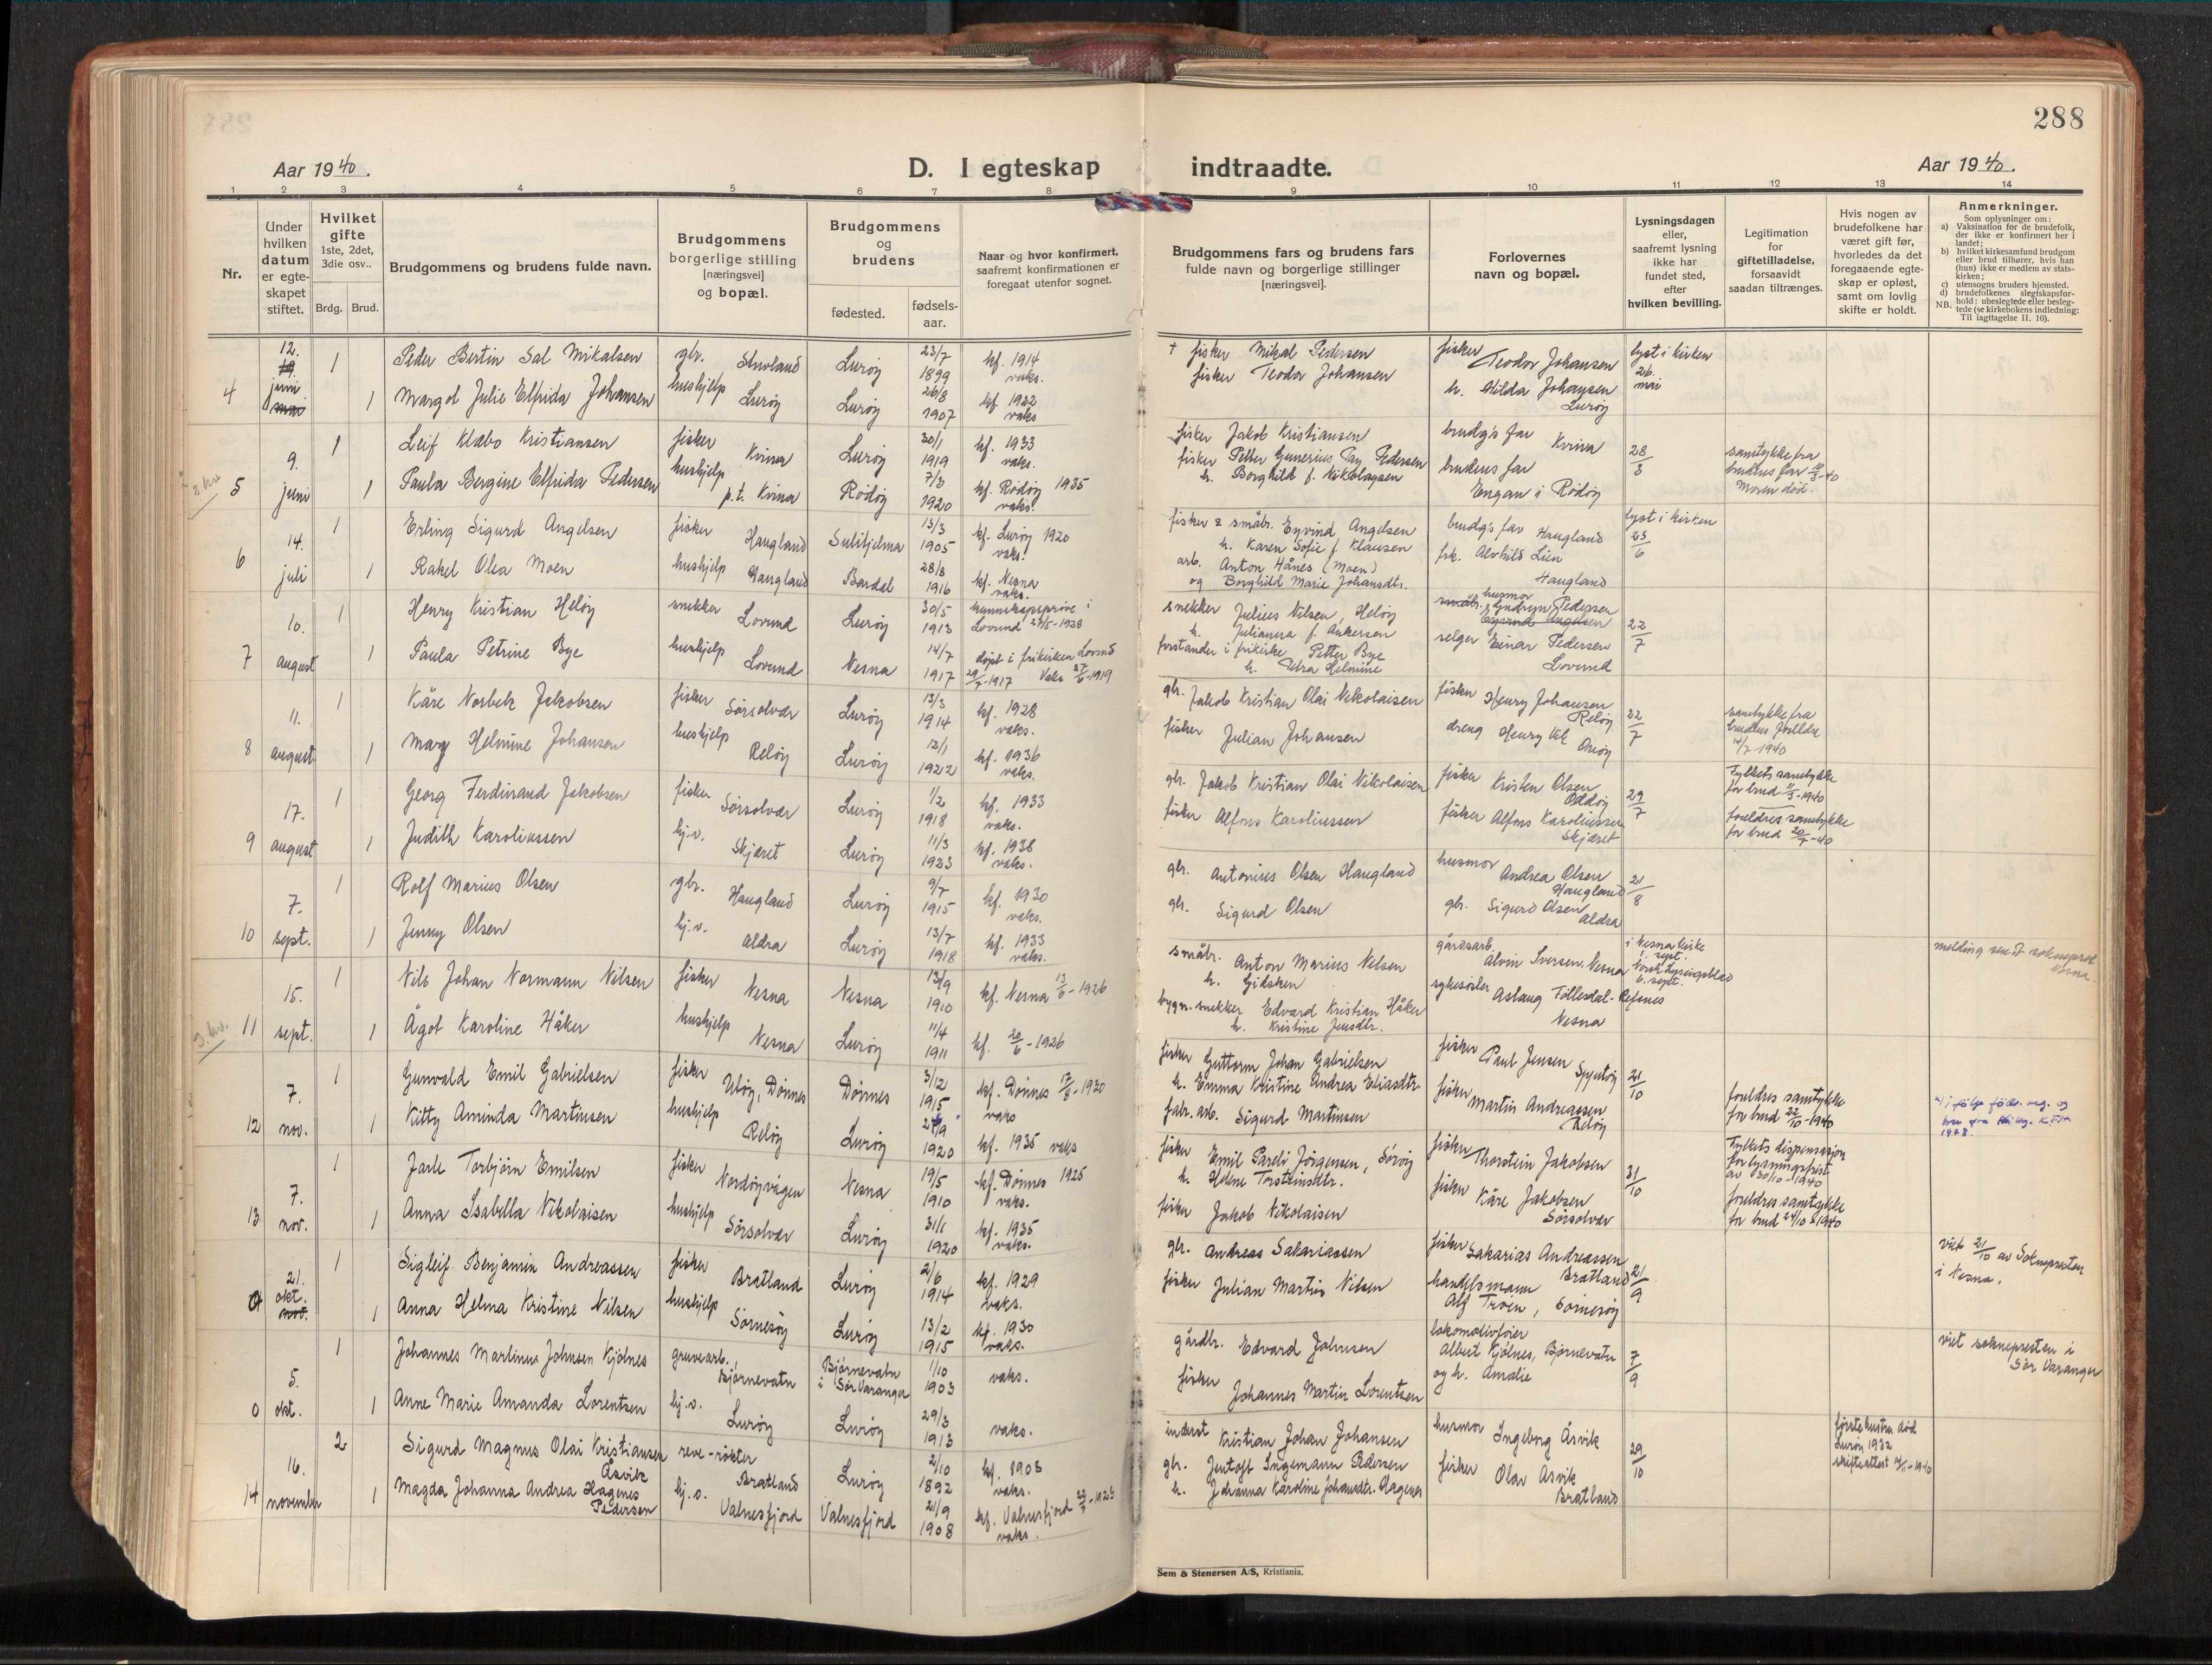 288
Aar 1940.
D. I egteskap indtraadte.
Aar 1940.
1 2 3 4 5 6 7 8 9 10 11 12 13 14
Nr.
Under hvilken datum er egte-skapet stiftet.
Hvilket gifte 1ste, 2det, 3die osv..
Brdg. Brud.
Brudgommens og brudens fulde navn.
Brudgommens borgerlige stilling [næringsvei] og bopæl.
Brudgommens og brudens
fødested.
fødsels-aar.
Naar og hvor konfirmert, saafremt konfirmationen er foregaat utenfor sognet.
Brudgommens fars og brudens fars fulde navn og borgerlige stillinger [næringsvei].
Forlovernes navn og bopæl.
Lysningsdagen eller, saafremt lysning ikke har fundet sted, efter hvilken bevilling.
Legitimation for giftetilladelse, forsaavidt saadan tiltrænges.
Hvis nogen av brudefolkene har været gift før, hvorledes da det foregaaende egte-skap er opløst, samt om lovlig skifte er holdt.
Anmerkninger.
Som oplysninger om:
a) Vaksination for de brudefolk, der ikke er konfirmert her i landet;
b) hvilket kirkesamfund brudgom eller brud tilhører, hvis han (hun) ikke er medlem av stats-kirken;
c) utensogns bruders hjemsted.
d) brudefolkenes slegtskapsfor-hold: ubeslegtede eller besleg-tede (se kirkebokens indledning: Til iagttagelse II. 10).
NB.
4 12. 19. juni mai
1 Peder Bertin Sal Mikalsen gbr. Lurøy 23/7 1899 kf. 1914 vaks.
1 Margot Julie Elfrida Johansen hushjelp Lurøy Lurøy 26/8 1907 kf. 1922 vaks
+ fisker Mikal Pedersen
fisker Teodor Johansen
fisker Teodor Johansen
h. Hilda Johansen Lurøy
lyst i kirken 26. mai
5 9. juni
1 Leif Klæbo Kristiansen fisker Kvina Lurøy 30/1 1919 kf. 1933 vaks.
1 Paula Bergine Elfrida Pedersen hushjelp p.t. Kvina Rødøy 7/3 1920 kf. Rødøy 1935 vaks.
fisker Jakob Kristiansen
fisker Petter Gunerius Pedersen
h. Borghild f. Nikolaysen
brudg's far Kvina
brudens far Engan i Rødøy
samtykke fra brudens far
Moren død.
6 14. juli
1 Erling Sigurd Angelsen fisker Haugland Sulitjelma 13/3 1905 kf. Lurøy 1920 vaks.
1 Rakel Olea Moen hushjelp Haugland Bardal 28/8 1916 kf. Nesna vaks.
fisker & småbr. Eyvind Angelsen
h. Karen Sofie f. Klausen
arb. Anton Hånes (Moen)
og Borghild Marie Johansdtr.
brudg's far Haugland
frk. Alvhild Lien Haugland
lyst i kirken 23/6
7 10. august
1 Henry Kristian Heløy snekker Lovund Lurøy 30/5 1913 kunnskapsprøve i Lovund 27/5-1928
1 Paula Petrine Bye hushjelp Lovund Nesna 14/7 1917 døpt i frikirken Lovund 29/7-1917
snekker Julius Nilsen, Heløy
h. Julianna f. Ankersen
forstander i frikirke Petter Bye
h. Petra Helmine
husmor Gudrun Pedersen
småbr. Eyvind Angelsen
selger Einar Pedersen Lovund
22/7
8 11. august
1 Kåre Norbek Jakobsen fisker Sørsolvær Lurøy 13/3 1914 kf. 1928 vaks.
1 Mary Helmine Johansen hushjelp Reløy Lurøy 12/1 1922 kf. 1936 vaks.
gbr. Jakob Kristian Olai Nikolaisen
fisker Julian Johansen
fisker Henry Johansen Reløy
dreng Henry Onøy
22/7
samtykke fra brudens foreldre 14/7-1940
9 17. august
1 Georg Ferdinand Jakobsen fisker Sørsolvær Lurøy 1/2 1918 kf. 1933 vaks.
1 Judith Karoliussen hj.v. Skjæret Lurøy 11/3 1923 kf. 1938 vaks.
gbr. Jakob Kristian Olai Nikolaisen
fisker Alfons Karoliussen
fisker Kristen Olsen
fisker Alfons Karoliussen Skjæret
29/7
Fylkets samtykke for brud 11/3-1940
foreldres samtykke for brud 20/7-40
10 7. sept.
1 Rolf Marius Olsen gbr. Haugland Lurøy 9/7 1915 kf. 1930 vaks.
1 Jenny Olsen hj.v. Aldra Lurøy 13/7 1918 kf. 1933 vaks.
gbr. Antonius Olsen Haugland
gbr. Sigurd Olsen
husmor Andrea Olsen Haugland
gbr. Sigurd Olsen Aldra
21/8
11 15. sept.
1 Nils Johan Normann Nilsen fisker Nesna Nesna 13/9 1910 kf. Nesna 13/6-1926
1 Ågot Karoline Håker hushjelp Nesna Lurøy 11/4 1911 kf. 20/6-1926
småbr. Anton Marius Nilsen
h. Gidsken
bygn.snekker Edvard Kristian Håker
h. Kristine Jensdtr.
gårdsarb. Alvin Iversen, Nesna
sykesøster Aslaug Tollesdal-Refsnes Nesna
i Nesna kirke 1. sept. Norsk Lysingsblad 6. sept.
melding sendt sokneprest Nesna.
12 7. nov.
1 Gunvald Emil Gabrielsen fisker Uløy, Dønnes Dønnes 3/12 1915 kf. Dønnes 17/8-1930 vaks
1 Kitty Aminda Martinsen hushjelp Reløy Lurøy 1920 kf. 1935 vaks
fisker Guttorm Johan Gabrielsen
h. Emma Kristine Andrea Eliasdtr.
fabr.arb. Sigurd Martinsen
fisker Paul Jensen
fisker Martin Andreassen Reløy
21/10
foreldres samtykke for brud 22/10-1940
13 7. nov.
1 Jarle Torbjørn Emilsen fisker Nordøyvågen Nesna 19/5 1910 kf. Dønnes 1925 vaks.
1 Anna Isabella Nikolaisen hushjelp Sørsolvær Lurøy 31/1 1920 kf. 1935 vaks.
fisker Emil Pareli Jørgensen,
h. Helene Torsteinsdtr.
fisker Jakob Nikolaisen
fisker Thorstein Jakobsen
fisker Kåre Jakobsen Sørsolvær
31/10
Fylkets dispensasjon for lysningsfrist av 30/10-1940
foreldres samtykke for brud 24/10-1940
0 21. okt. nov.
1 Sigleif Benjamin Andreassen fisker Bratland Lurøy 2/6 1914 kf. 1929 vaks.
1 Anna Helma Kristine Nilsen hushjelp Sørnesøy Lurøy 13/2 1915 kf. 1930 vaks.
gbr. Andreas Sakariassen
fisker Julian Martin Nilsen
fisker Sakarias Andreassen Bratland
handelsmann Alf Troen, Sørnesøy
21/9
viet 21/10 av Soknepresten i Nesna.
0 5. okt.
1 Johannes Martinus Johnsen Kjølnes gruvearb. Bjørnevatn Bjørnevatn i Sør Varanger 1/10 1903 vaks.
1 Anne Marie Amanda Lorentsen hj.v. Lurøy Lurøy 29/3 1913 vaks.
gårdbr. Edvard Johnsen
fisker Johannes Martin Lorentsen
lokomotivfører Albert Kjølnes, Bjørnevatn
og h. Amalie
7/9
viet soknepresten i Sør Varanger
14 16. november
2 Sigurd Magnus Olai Kristiansen Åsvik reve-røkter Bratland Lurøy 2/10 1892 kf. 1908 vaks.
1 Magda Johanna Andrea Hagenes Pedersen hj.v. Valnesfjord Valnesfjord 21/9 1908 kf. Valnesfjord vaks.
inderst Kristian Johan Johansen
gbr. Jentoft Ingemann Pedersen
h. Johanna Karoline Johansdtr. Hagenes
husmor Ingeborg Åsvik
fisker Olav Åsvik Bratland
29/10
første hustru død Lurøy 1932
Sem & Stenersen A/S, Kristiania.